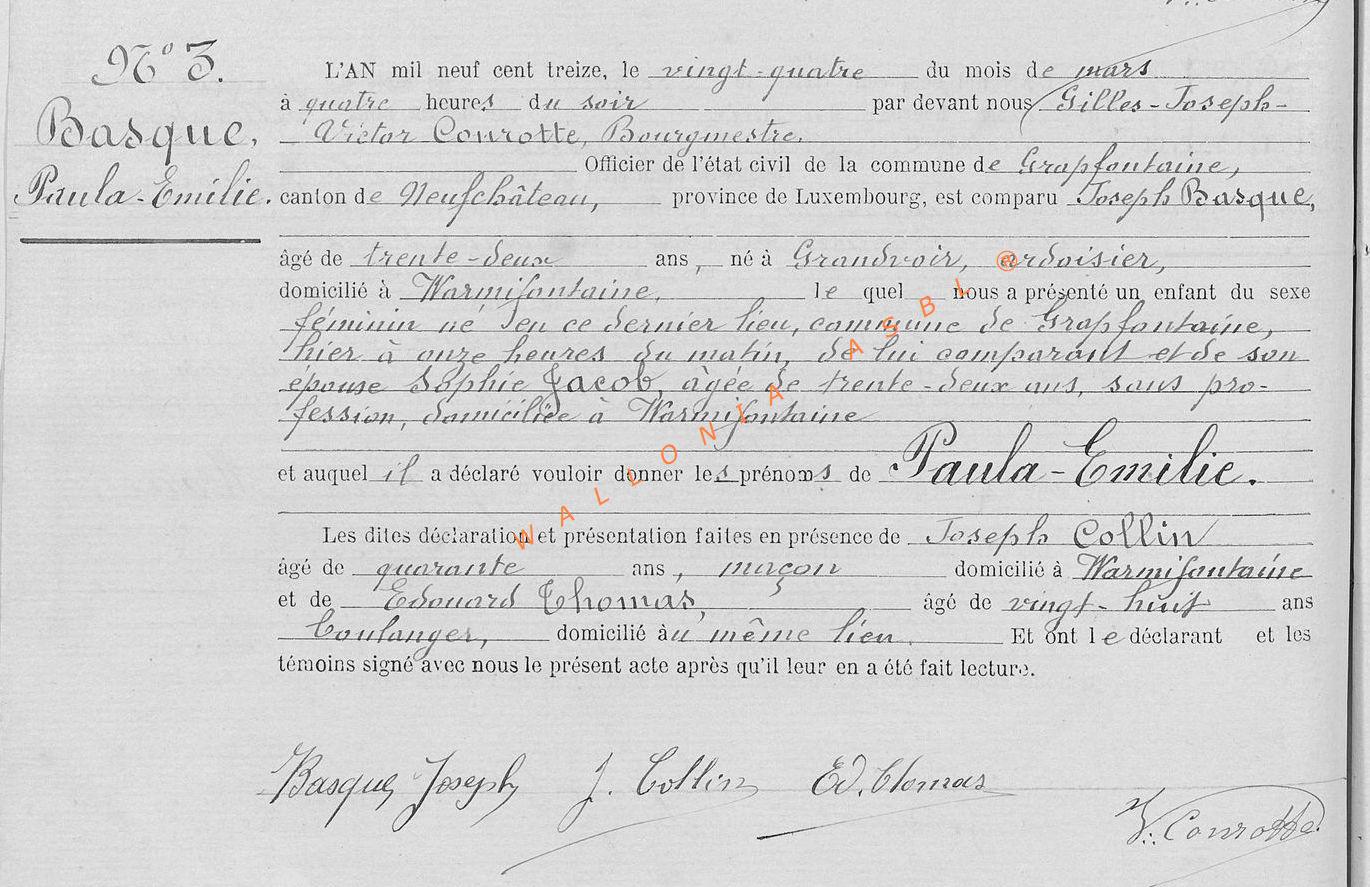 N° 3.
Basque,
Paula-Emilie.
L'AN mil neuf cent treize, le vingt-quatre du mois de mars
à quatre heures du soir par devant nous Gilles-Joseph-
Victor Conrotte, Bourgmestre,
Officier de l'état civil de la commune de Grapfontaine,
canton de Neufchâteau, province de Luxembourg, est comparu Joseph Basque,
âgé de trente-deux ans, né à Grandvoir, ardoisier,
domicilié à Warmifontaine, le quel nous a présenté un enfant du sexe
féminin né en ce dernier lieu, commune de Grapfontaine,
hier à onze heures du matin, de lui comparant et de son
épouse Sophie Jacob, âgée de trente-deux ans, sans pro-
fession, domiciliée à Warmifontaine
et auquel il a déclaré vouloir donner les prénoms de Paula-Emilie.
Les dites déclaration et présentation faites en présence de Joseph Collin
âgé de quarante ans, maçon domicilié à Warmifontaine
et de Edouard Thomas, âgé de vingt-huit ans
boulanger, domicilié au même lieu. Et ont le déclarant et les
témoins signé avec nous le présent acte après qu'il leur en a été fait lecture.
Basque Joseph J. Collin Ed. Thomas
V. Conrotte
WALLONIA ASBL @